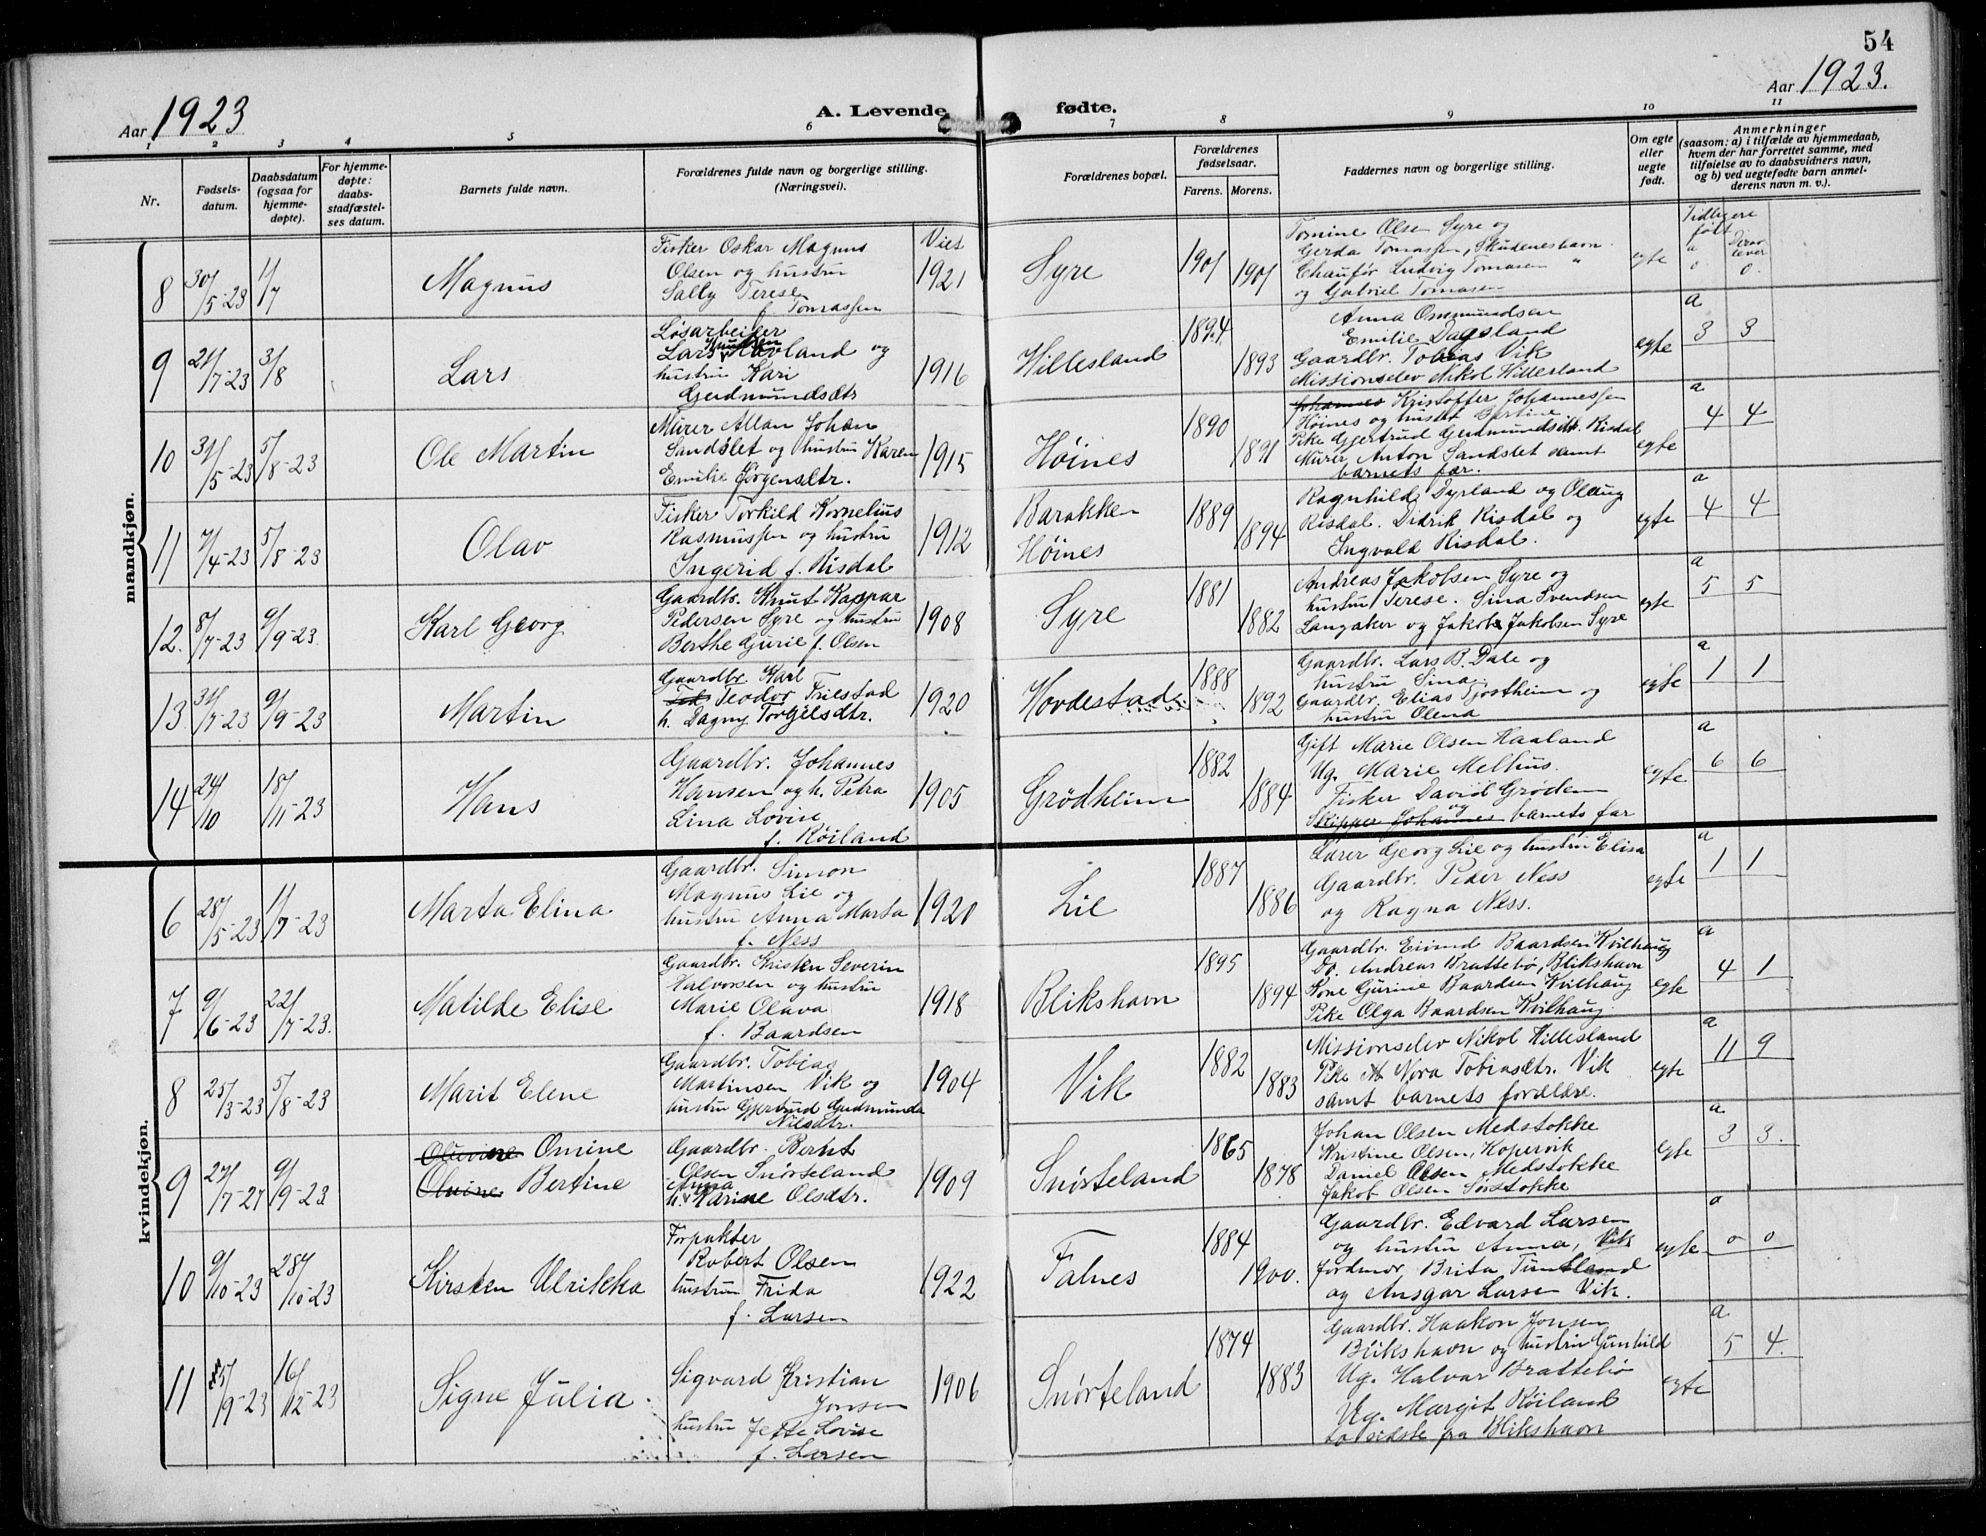 54
Aar 1923
A. Levende fødte.
Aar 1923.
1 2 3 4 5 6 7 8 9 10 11
Nr.
Fødsels-
datum.
Daabsdatum
(ogsaa for
hjemme-
døpte).
For hjemme-
døpte:
daabs-
stadfæstel-
ses datum.
Barnets fulde navn.
Forældrenes fulde navn og borgerlige stilling.
(Næringsvei).
Forældrenes bopæl.
Forældrenes
fødselsaar.
Farens. Morens.
Faddernes navn og borgerlige stilling.
Om egte
eller
uegte
født.
Anmerkninger
(saasom: a) i tilfælde av hjemmedaab,
hvem der har forrettet samme, med
tilføielse av to daabsvidners navn,
og b) ved uegtefødte barn anmel-
derens navn m. v.).
mandkjøn.
8 30/5-23 1/7 Magnus
Fisker Oskar Magnus
Olsen og hustru
Sally Terese
f. Tomassen
Viet
1921
Syre 1901 1901
Tomine Olsen Syre og
Gerda Tomassen, Skudeneshavn
Chaufør Ludvig Tomasen "
og Gabriel Tomasen
egte
Tidligere
født
a Derav
lever
0 0.
9 21/7-23 3/8 Lars
Løsarbeider
Lars Knutsen Havland og
hustru Kari
Gudmundsdtr
1916
Hillesland 1894. 1893
Anna Ommundsen
Emilie Dagsland
Gaardbr. Tobias Vik
Missionselev Nikol Hillesland
egte
a
3 3
10 31/5-23 5/8-23 Ole Martin
Murer Allan Johan
Sandslet og hustru Karen
Emilie Jørgensdtr.
1915
Høines 1890 1891
Johannes Kristoffer Johannessen
Høines og hustru Bertine
Pike Gjertrud Gudmundsdtr. Risdal
Murer Anton Sandslet samt
barnets far.
egte
a
4 4
11 7/4-23 5/8-23 Olav
Fisker Torkild Kornelius
Rasmussen og hustru
Ingerid f. Risdal
1912
Barakken
Høines
1889 1894
Ragnhild Dyrland og Olaug
Risdal. Didrik Risdal og
Ingvald Risdal.
egte
a
4 4
12. 8/7-23 9/9-23 Karl Georg
Gaardbr. Knut Kaspar
Pedersen Syre og hustru
Berthe Gurie f. Olsen
1908
Syre 1881 1882
Andreas Jakobsen Syre og
hustru Terese. Sina Svendsen
Langaker og Jakob Jakobsen Syre
egte
a
5 5
13. 31/7-23 9/9-23 Martin
Gaardbr. Karl
Teodor Friestad
h. Dagny Torgilsdtr.
1920
Hovdestad 1888 1892
Gaardbr. Lars B. Dale og
hustru Sina
Gaardbr. Elias Tjøstheim og
hustru Olena
egte
a
1 1
14 24/10 18/11-23 Hans
Gaardbr. Johannes
Hansen og h. Petra
Lina Lovise
f. Røiland
1905
Grødheim 1882 1884
Gift Marie Olsen Haaland
Ug. Marie Melhus.
Fisker David Grødem
Skipper Johannes og barnets far
egte
a
6 6
kvindekjøn.
6 28/5-23 1/7-23 Marta Elina
Gaardbr. Simon
Magnus Lie og
hustru Anna Marta
f. Ness
1920
Lie 1887 1886
Lærer Georg Lie og hustru Elisa
Gaardbr. Peder Ness
og Ragna Ness.
egte
a
1 1
7 9/6-23 22/7-23. Matilde Elise
Gaardbr. Kristen Severin
Halvorsen og hustru
Marie Olava
f. Baardsen
1918
Blikshavn 1895 1894
Gaardbr. Eivind Baardsen Kvilhaug
Do. Andreas Brattebø, Blikshavn
Kone Gurine Baardsen Kvilhaug
Pike Olga Baardsen Kvilhaug.
egte
a
4 1
8 25/3-23 5/8-23 Marit Elene
Gaardbr. Tobias
Martinsen Vik og
hustru Gjertrud Gudmunda
Nilsdtr.
1904
Vik 1882 1883
Missionselev Nikol Hillesland
Pike Nora Tobiasdtr. Vik
samt barnets forældre.
egte
a
11 9
9 27/7-27 9/9-23 Omine
Oluine Bertine
Gaardbr. Bernt
Olsen Snørteland
h. Anna Karine Olsdtr.
1909
Snørteland 1865 1878
Johan Olsen Medstokke
Kristine Olsen, Kopervik
Daniel Olsen Medstokke
Jakob Olsen Sørstokke
egte
a
3 3.
10 9/10-23 28/10-23 Kirsten Ulrikka
Forpakter
Robert Olsen
hustru Frida
f. Larsen
1922
Falnes 1884 1900.
Gaardbr. Edvard Larsen
og hustru Anna, Vik
Jordmor Brita Tuntland
og Ansgar Larsen Vik.
egte
a
0 0
11 15/9-23 16/12-23 Signe Julia
Sigvard Kristian
Jonsen
hustru Jette Lovise
f. Larsen
1906
Snørteland 1874 1883
Gaardbr. Haakon Jonsen
Blikshavn og hustru Gunhild
Ug. Halvar Brattebø
Ug. Margit Røiland
to sidste fra Blikshavn
egte
a
5 4.